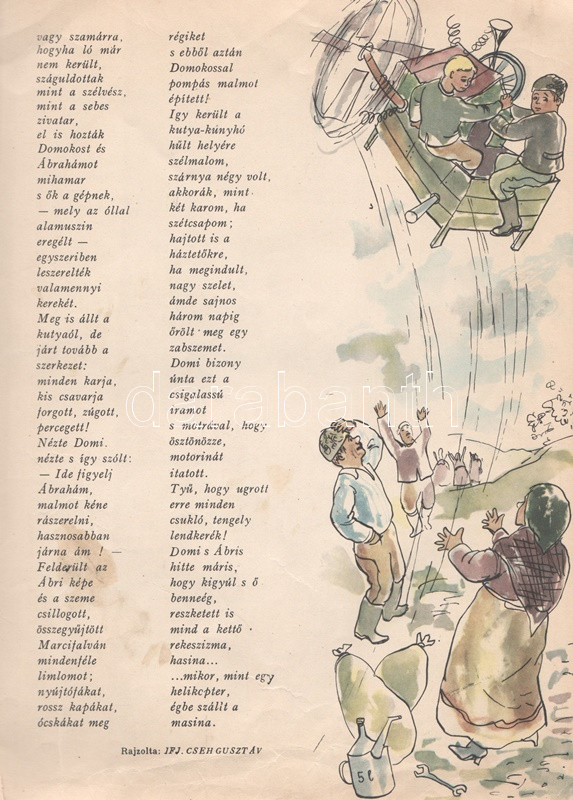 vagy szamárra,
hogyha ló már
nem került,
száguldottak
mint a szélvész,
mint a sebes
zivatar,
el is hozták
Domokost és
Ábrahámot
mihamar
s ők a gépnek,
— mely az óllal
alamuszin
eregélt —
egyszeriben
leszerelték
valamennyi
kerekét.
Meg is állt a
kutyaól, de
járt tovább a
szerkezet:
minden karja,
kis csavarja
forgott, zúgott,
percegett!
Nézte Domi.
nézte s így szólt:
— Ide figyelj
Ábrahám,
malmot kéne
rászerelni,
hasznosabban
járna ám ! —
Felderült az
Ábri képe
és a szeme
csillogott,
összegyűjtött
Marcifalván
mindenféle
limlomot;
nyújtófákat,
rossz kapákat,
ócskákat meg
régiket
s ebből aztán
Domokossal
pompás malmot
épített!
Igy került a
kutya-kúnyhó
hűlt helyére
szélmalom,
szárnya négy volt,
akkorák, mint
két karom, ha
szétcsapom;
hajtott is a
háztetőkre,
ha megindult,
nagy szelet,
ámde sajnos
három napig
őrölt meg egy
zabszemet.
Domi bizony
únta ezt a
csigalassú
iramot
s motrával, hogy
ösztönözze,
motorinát
itatott.
Tyű, hogy ugrott
erre minden
csukló, tengely
lendkerék!
Domi s Ábris
hitte máris,
hogy kigyúl s ő
benneég,
reszketett is
mind a kettő
rekeszizma,
hasina...
...mikor, mint egy
helikopter,
égbe szállt a
masina.
Rajzolta: IFJ. CSEH GUSZTÁV
5 l
darabanth